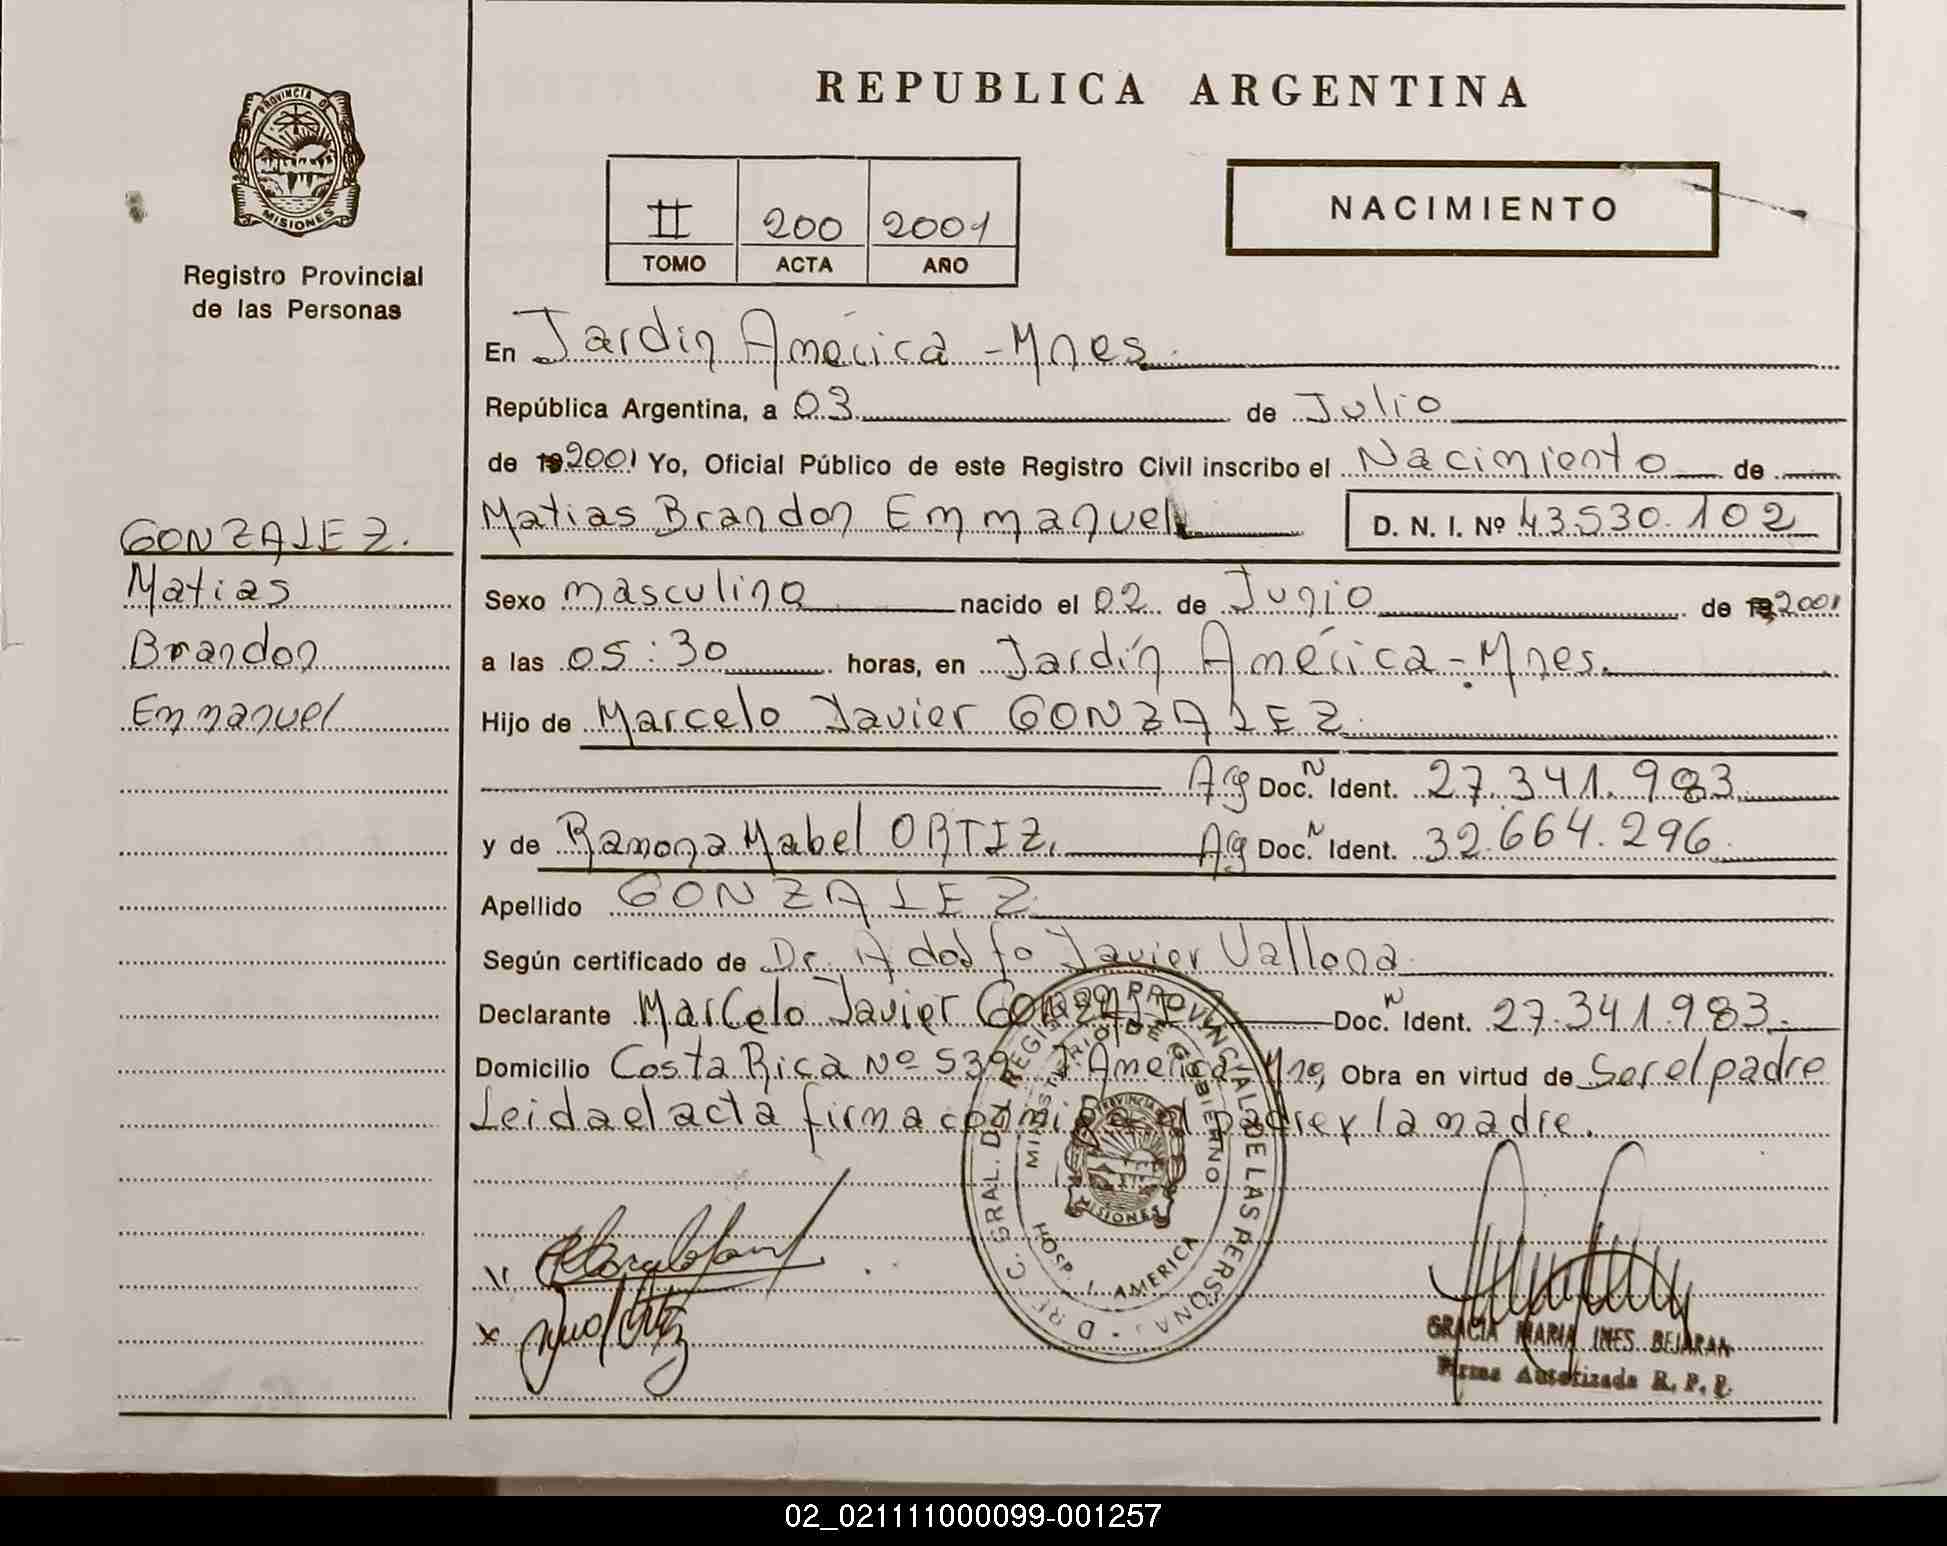 REPUBLICA ARGENTINA
PROVINCIA DE
MISIONES
Registro Provincial
de las Personas
II 200 2001
TOMO ACTA AÑO
NACIMIENTO
En Jardín América - Mnes.
República Argentina, a 03 de Julio
de 19 2001 Yo, Oficial Público de este Registro Civil inscribo el Nacimiento de
Matias Brandon Emmanuel D. N. I. Nº 43.530.102
GONZALEZ.
Matias
Brandon
Emmanuel
Sexo masculino nacido el 02 de Junio de 19 2001
a las 05:30 horas, en Jardín América - Mnes.
Hijo de Marcelo Javier GONZALEZ.
Arg Doc. N Ident. 27.341.983
y de Ramona Mabel ORTIZ. Arg Doc. N Ident. 32.664.296
Apellido GONZALEZ
Según certificado de Dr. Adolfo Javier Vallona
Declarante Marcelo Javier Doc. N Ident. 27.341.983.
Domicilio Costa Rica Nº 539 J. América Obra en virtud de Ser el padre
Leida el acta firma conmigo el padre y la madre.
REGISTRO PROVINCIAL DE LAS PERSONAS
MINISTERIO DE GOBIERNO
PROVINCIA DE
MISIONES
HOSP. J. AMERICA
GRACIA MARIA INES BEJARAN
Firma Autorizada R. P. P.
02_021111000099-001257